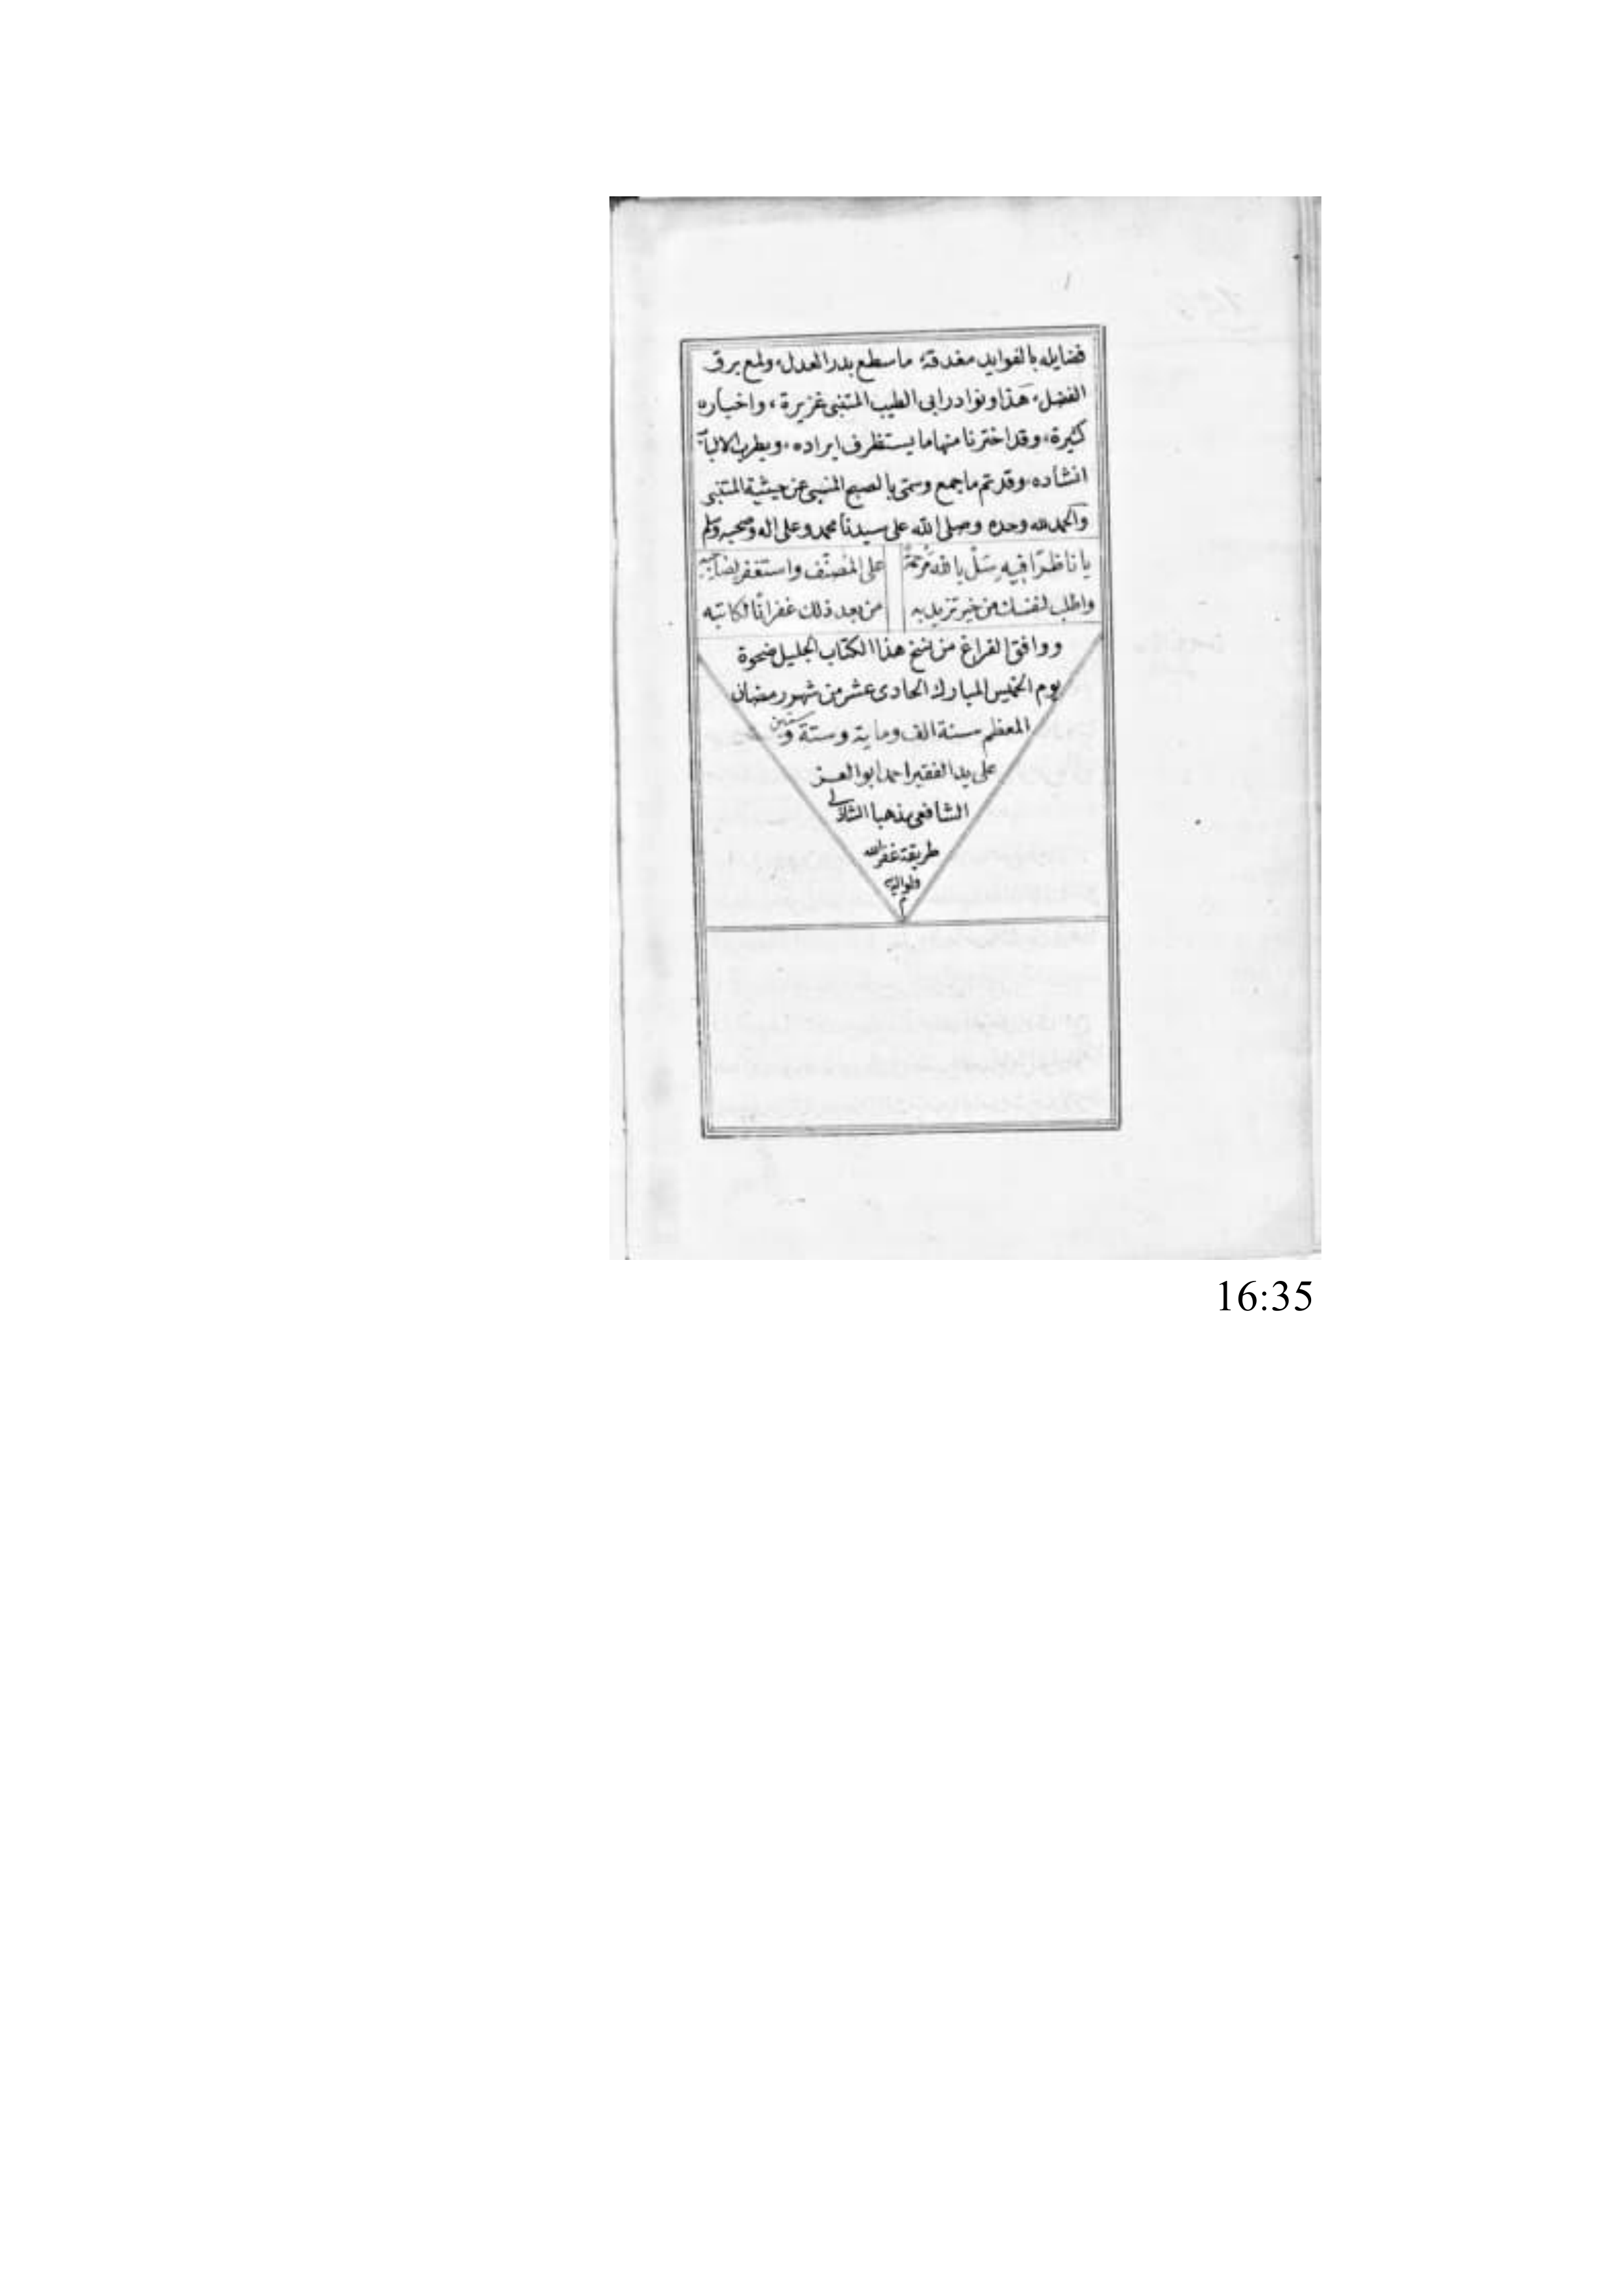 فضايله بالفوايد مغدقة، ما سطع بدر العدل، ولمع برق
الفضل، هذا ونوادر ابى الطيب المتنبى غزيرة، واخباره
كثيرة، وقد اخترنا منها ما يستظرف ايراده، ويطرب الالباب
انشاده، وقد تم ما جمع وسمى بالصبح المنبى عن حيثية المتنبى
والحمد لله وحده وصلى الله على سيدنا محمد وعلى اله وصحبه وسلم
يا ناظرًا فيه سَلْ بالله مَرْحَمَةً على المُصَنّف واستغفر لصاحبه
واطلب لنفسك من خير تريد به من بعد ذلك غفرانًا لكاتبه
ووافق الفراغ من نسخ هذا الكتاب الجليل ضحوة
يوم الخميس المبارك الحادى عشر من شهور رمضان
المعظم سنة الف وماية وستة وستين
على يد الفقير احمد ابو العز
الشافعى مذهبا الشاذلى
طريقة غفر الله
ولوالديه
م
16:35